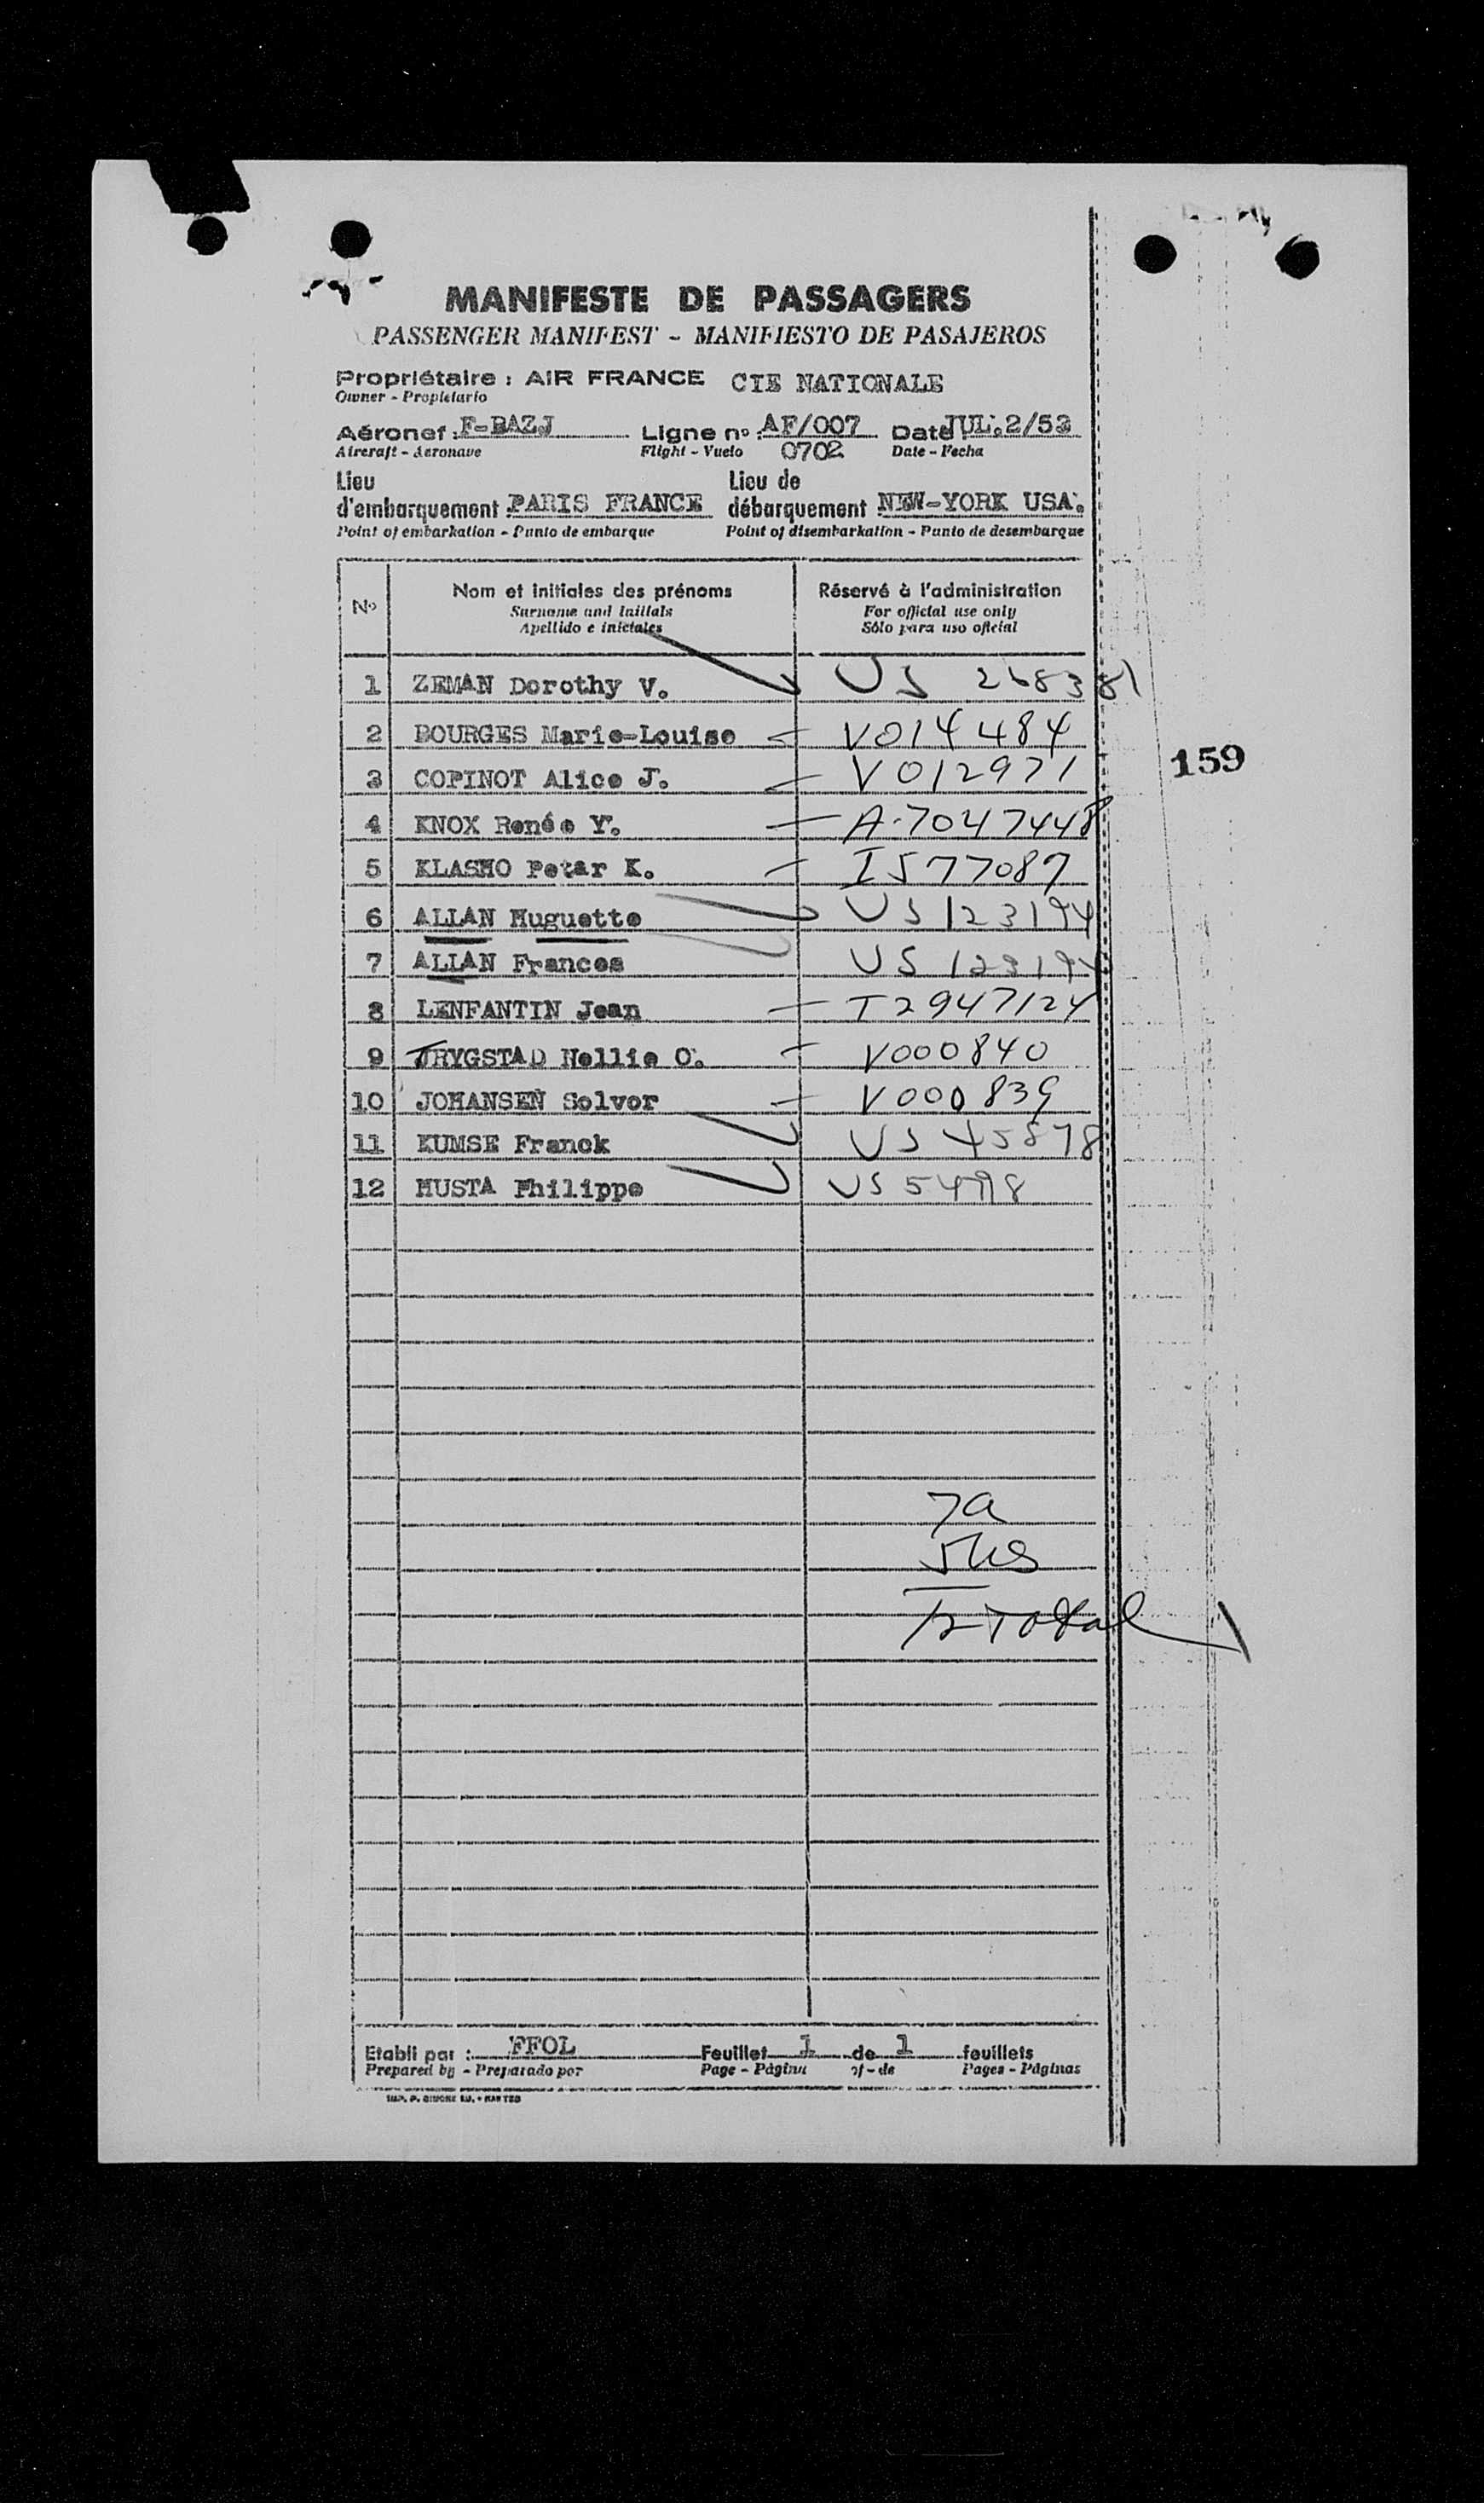 MANIFESTE DE PASSAGERS
PASSENGER MANIFEST - MANIFIESTO DE PASAJEROS
Propriétaire : AIR FRANCE CIE NATIONALE
Owner - Propietario
Aéronef : F-BAZJ Ligne no : AF/007 Date : JUL.2/53
Aircraft - Aeronave Flight - Vuelo 0702 Date - Fecha
Lieu Lieu de
d'embarquement PARIS FRANCE débarquement NEW-YORK USA.
Point of embarkation - Punto de embarque Point of disembarkation - Punto de desembarque
No Nom et initiales des prénoms Réservé à l'administration
Surname and initials For official use only
Apellido e iniciales Sólo para uso oficial
1 ZEMAN Dorothy V. US 268381
2 BOURGES Marie-Louise V014484
159
3 COPINOT Alice J. V012971
4 KNOX Renée Y. A-7047448
5 KLASHO Petar K. I577087
6 ALLAN Huguette US 123194
7 ALLAN Frances US 123194
8 LENFANTIN Jean T2947124
9 TRYGSTAD Nellie O. V000840
10 JOHANSEN Solvor V000839
11 KUMSE Franck US 45878
12 MUSTA Philippe US
7a
5us
12 Total
Etabli par : FFOL Feuillet 1 de 1 feuillets
Prepared by - Preparado por Page - Página of - de Pages - Páginas